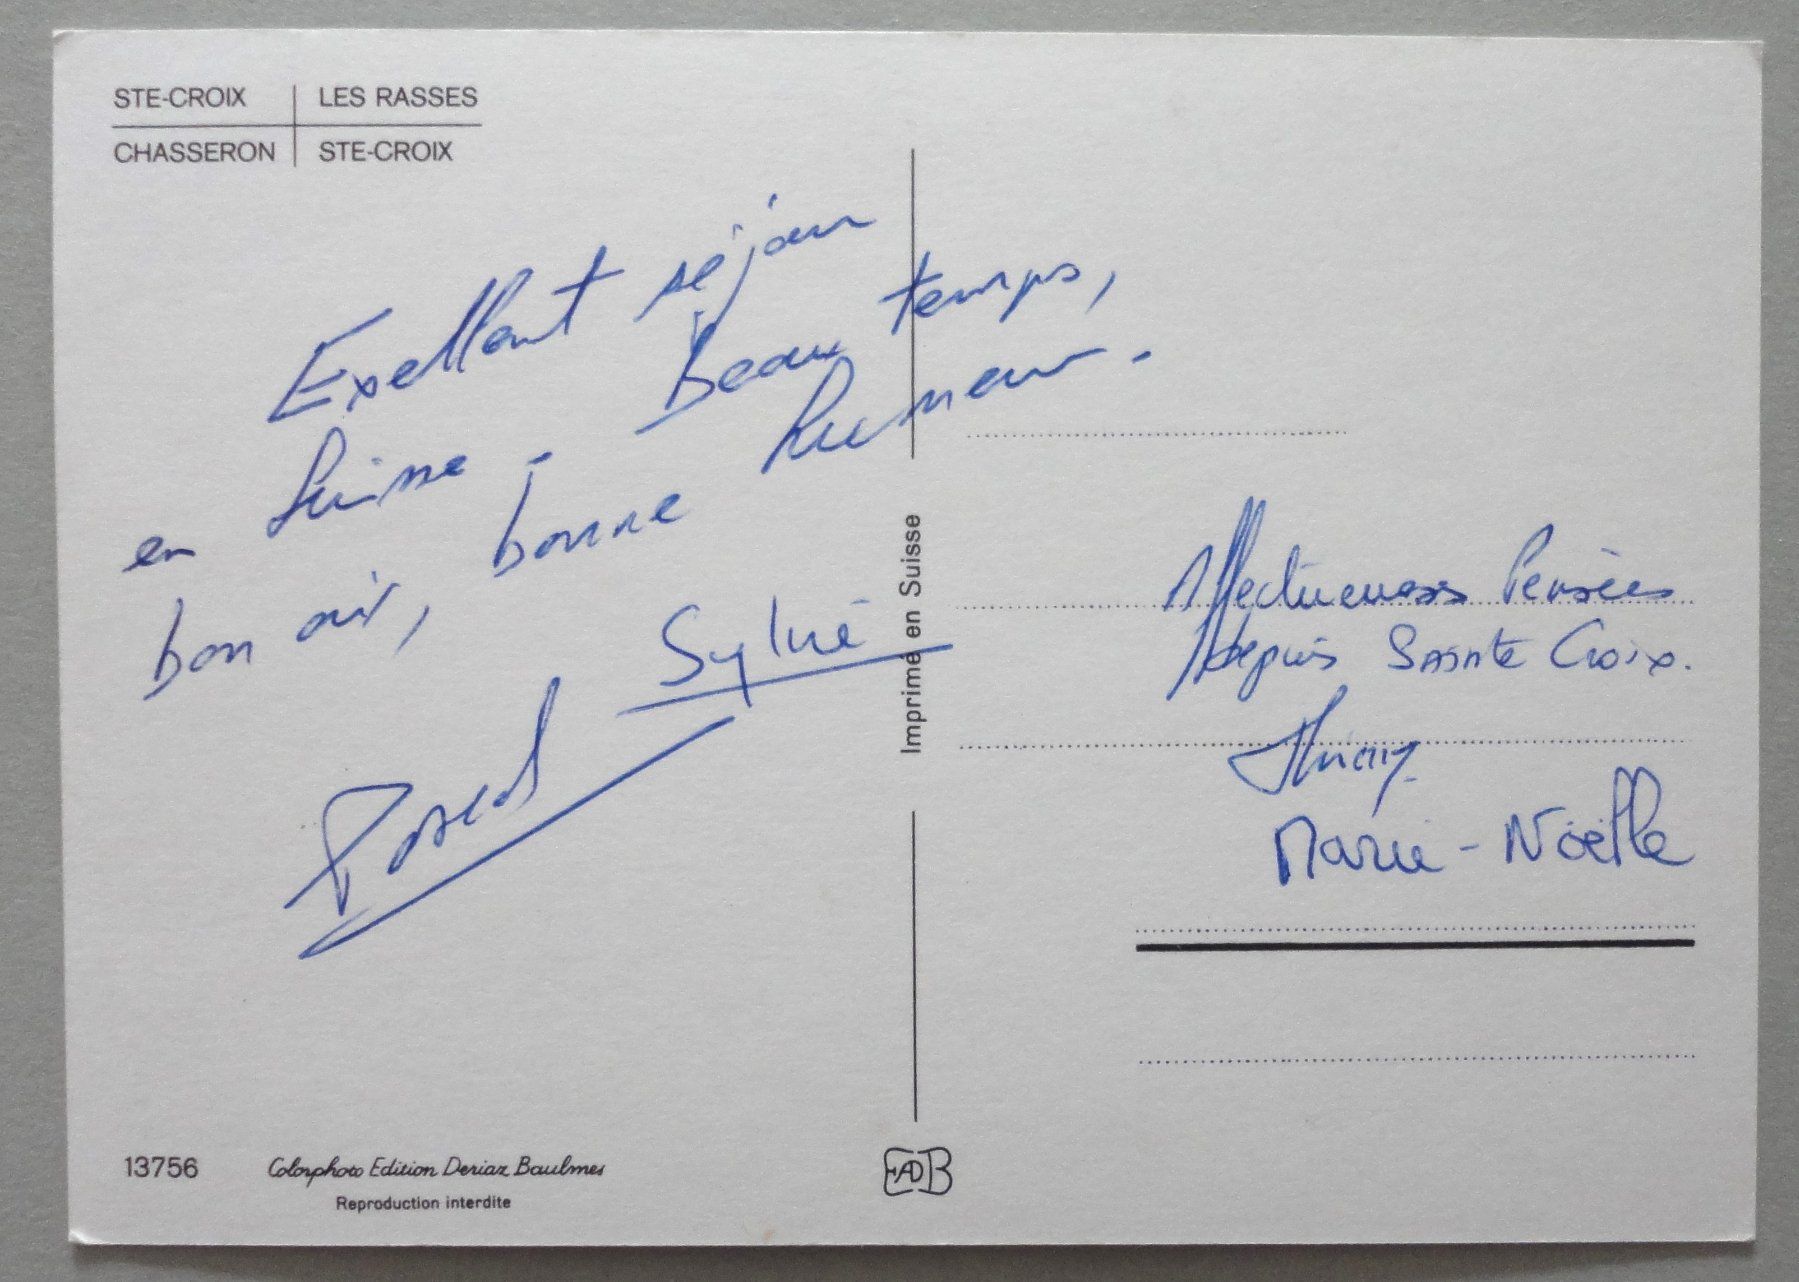 STE-CROIX LES RASSES
CHASSERON STE-CROIX
Exellent séjour
en Suisse - Beau temps,
bon air, bonne humeur.
Sylvie
Pascal
Imprimé en Suisse
Affectueuses Pensées
depuis Sainte Croix.
Thierry
Marie-Noëlle
13756 Colorphoto Edition Deriaz Baulmes
Reproduction interdite
EADB